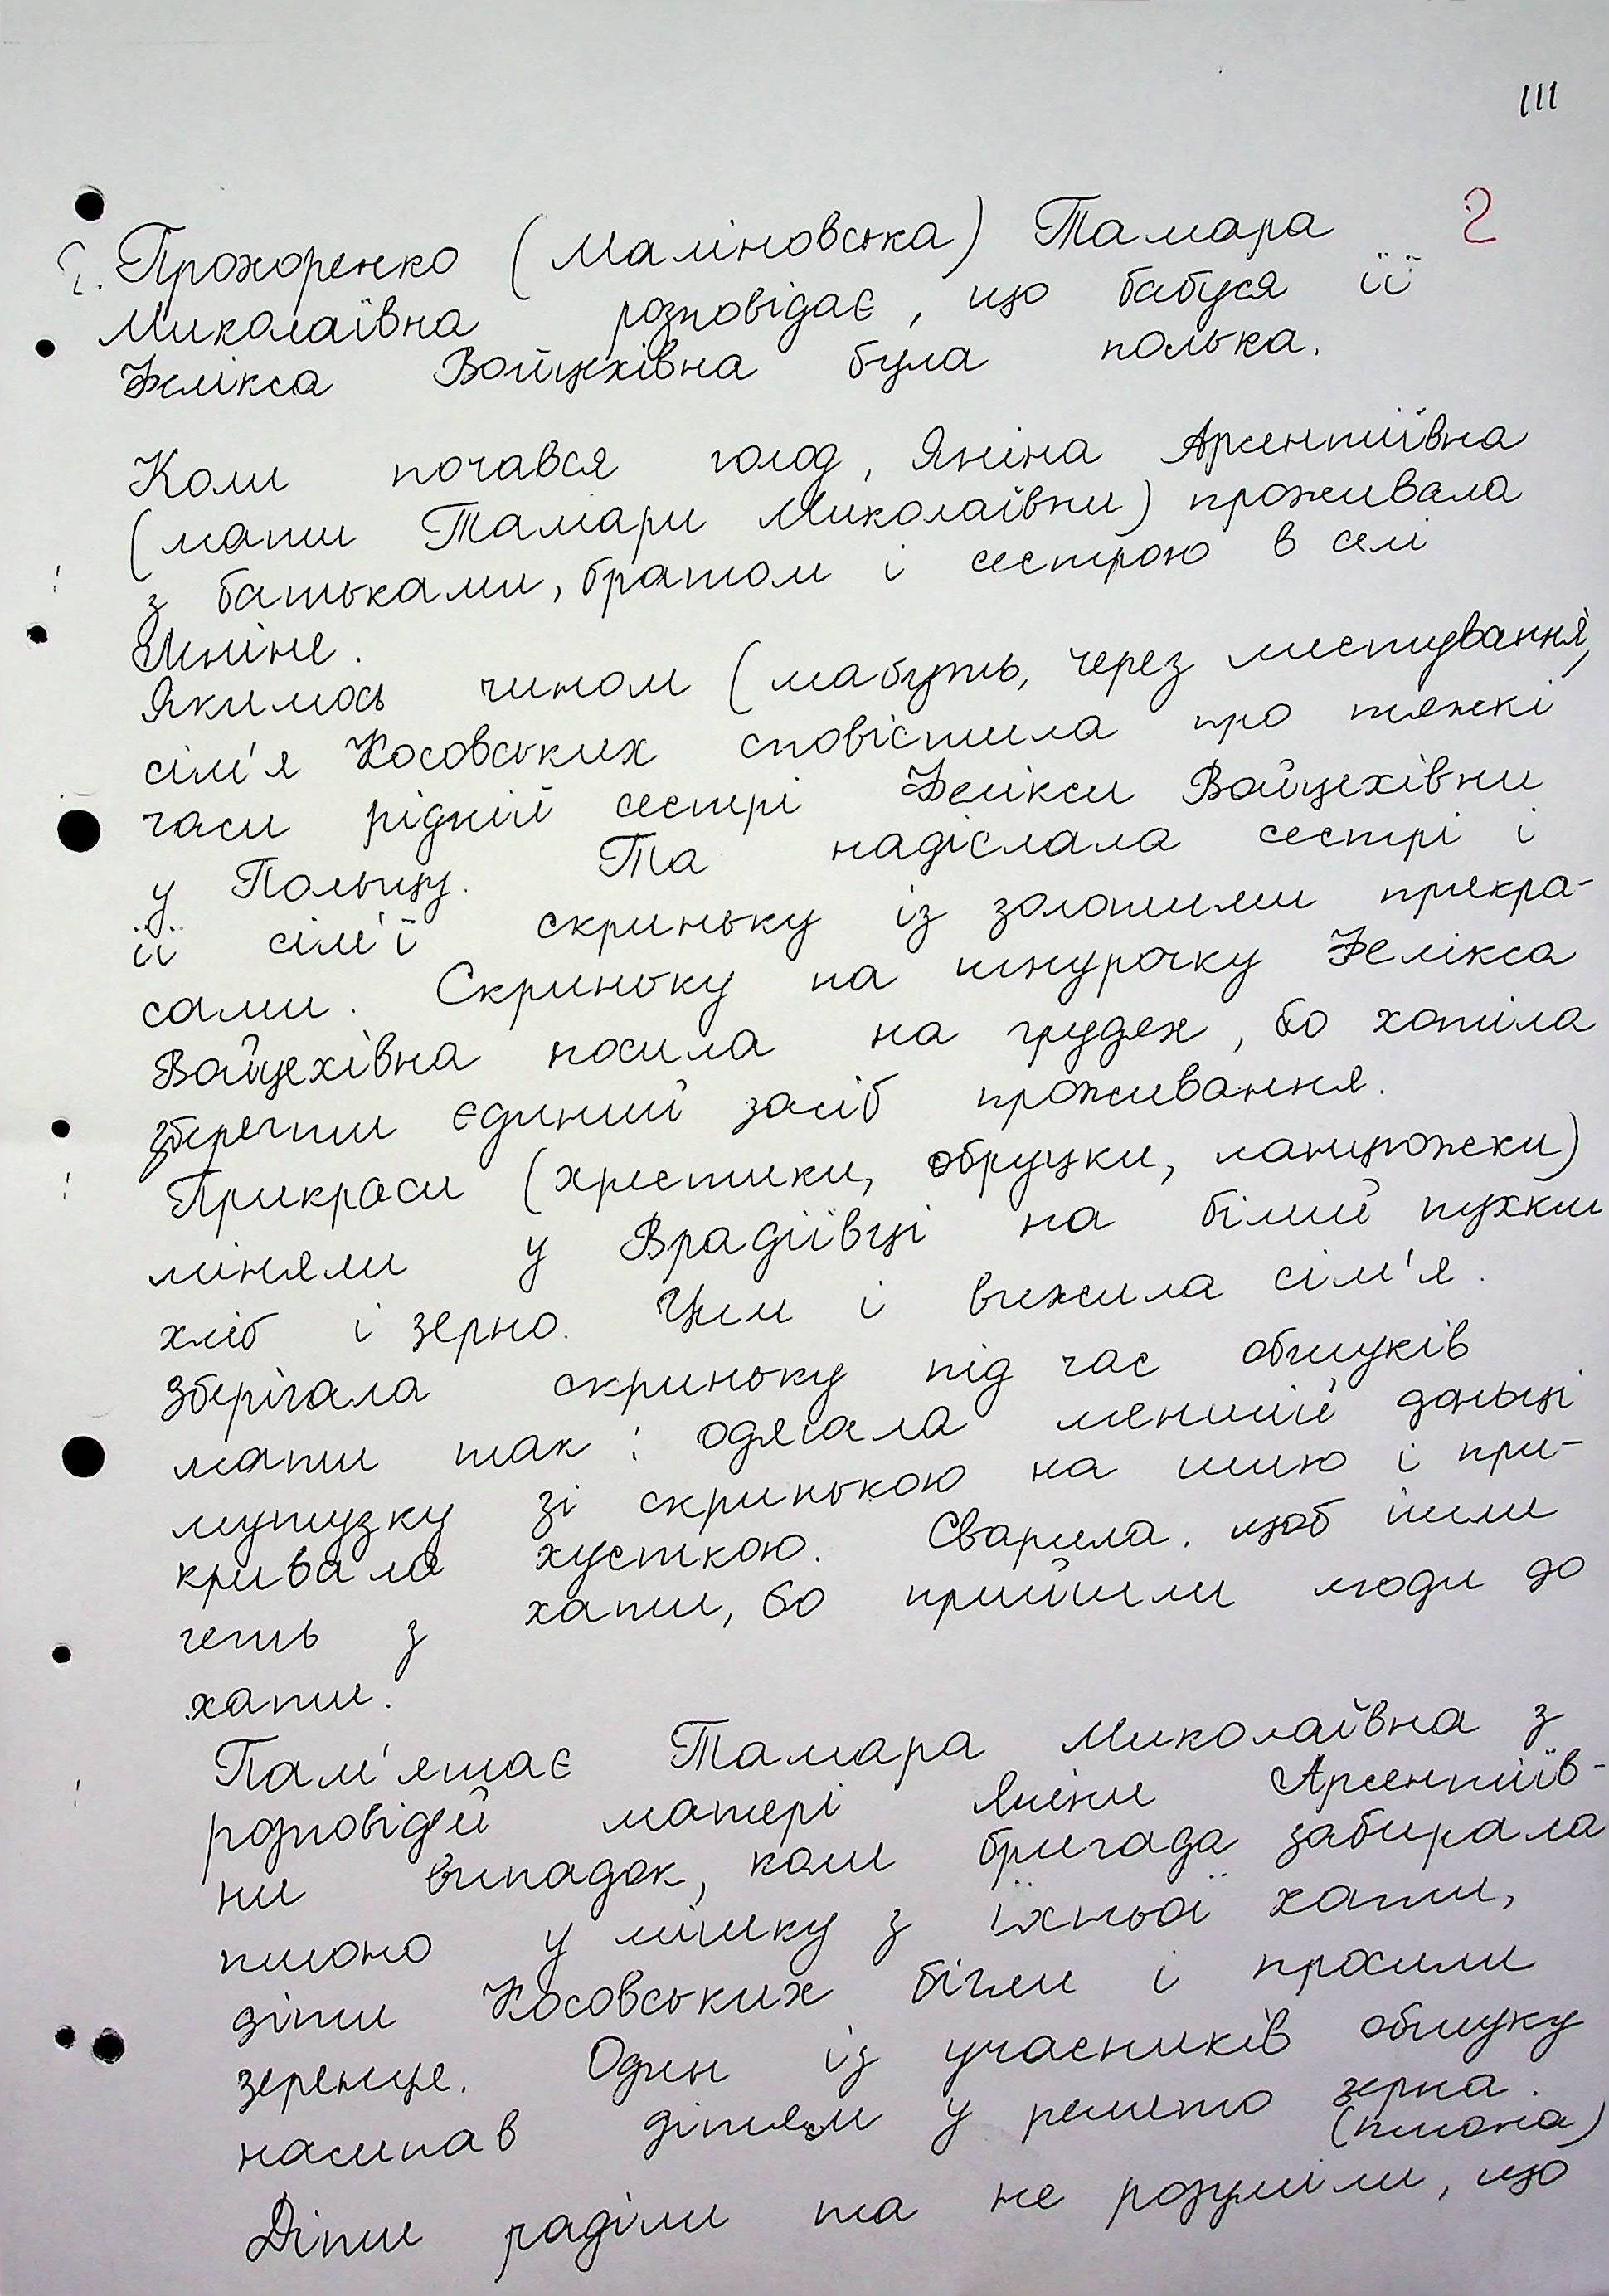 111
2
2. Прохоренко (Маліновська) Тамара
Миколаївна розповідає, що бабуся її
Фелікса Войцехівна була полька.
Коли почався голод, Яніна Арсентіївна
(мати Тамари Миколаївни) проживала
з батьками, братом і сестрою в селі
Якимось чином (мабуть, через листування,
сім'я Косовських сповістила про тяжкі
часи рідній сестрі Фелікси Войцехівни
у Польщу. Та надіслала сестрі і
її сім'ї скриньку із золотими прикра-
сами. Скриньку на шнурочку Фелікса
Войцехівна носила на грудях, бо хотіла
зберегти єдиний засіб проживання.
Прикраси (хрестики, обручки, ланцюжки)
міняли у Врадіївці на білий пухкий
хліб і зерно. Цим і вижила сім'я.
Зберігала скриньку під час обшуків
мати так: одягала меншій доньці
мутузку зі скринькою на шию і при-
кривала хусткою. Сварила, щоб йшли
геть з хати, бо прийшли люди до
хати.
Пам'ятає Тамара Миколаївна з
розповідей матері Яніни Арсентіїв-
ни випадок, коли бригада забирала
пшоно у мішку з їхньої хати,
діти Косовських бігли і просили
зеренце. Один із учасників обшуку
насипав дітям у решето зерна.
(пшона)
Діти раділи та не розуміли, що